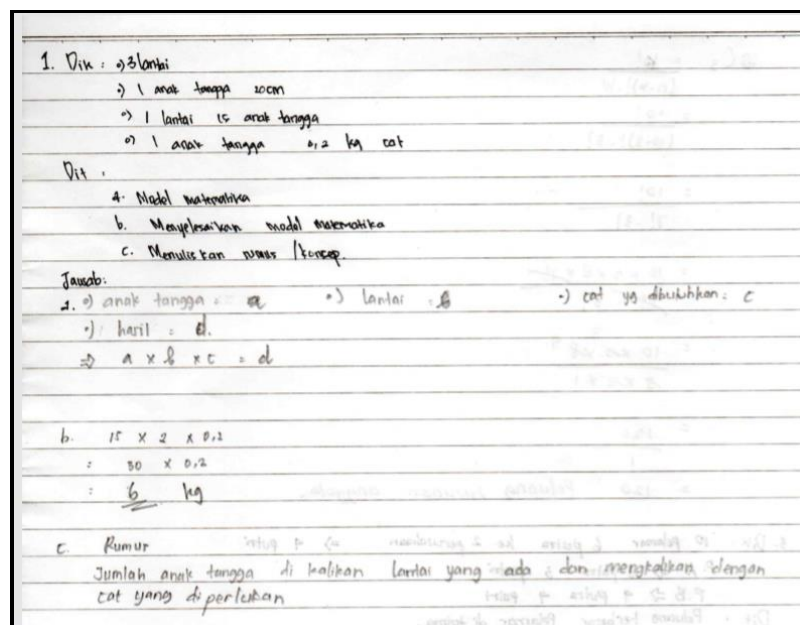 1. Dik : •) 3 lantai
•) 1 anak tangga 20cm
•) 1 lantai 15 anak tangga
•) 1 anak tangga 0,2 kg cat
Dit :
a. Model matematika
b. Menyelesaikan model matematika
c. Menuliskan rumus / konsep.
Jawab:
a. •) anak tangga = a •) lantai : b •) cat yg dibutuhkan : c
•) hasil : d.
⇒ a x b x c = d
b. 15 x 2 x 0,2
= 30 x 0,2
= 6 kg
c. Rumus
Jumlah anak tangga di kalikan lantai yang ada dan mengkalikan dengan
cat yang diperlukan